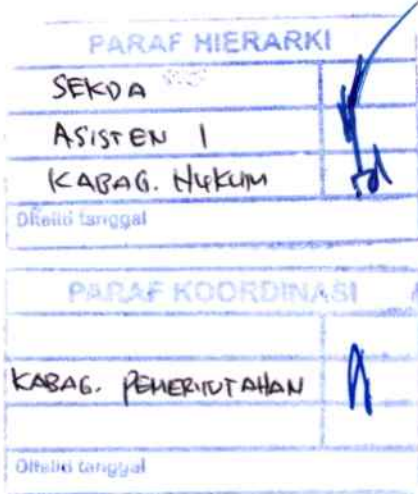 PARAF HIERARKI
SEKDA
ASISTEN 1
KABAG. HUKUM
Diteliti tanggal
PARAF KOORDINASI
KABAG. PEMERINTAHAN
Diteliti tanggal